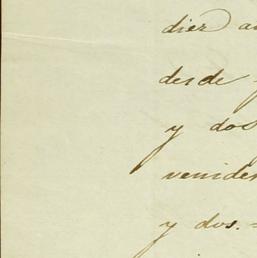 diez
desde
y dos
venider
y dos.